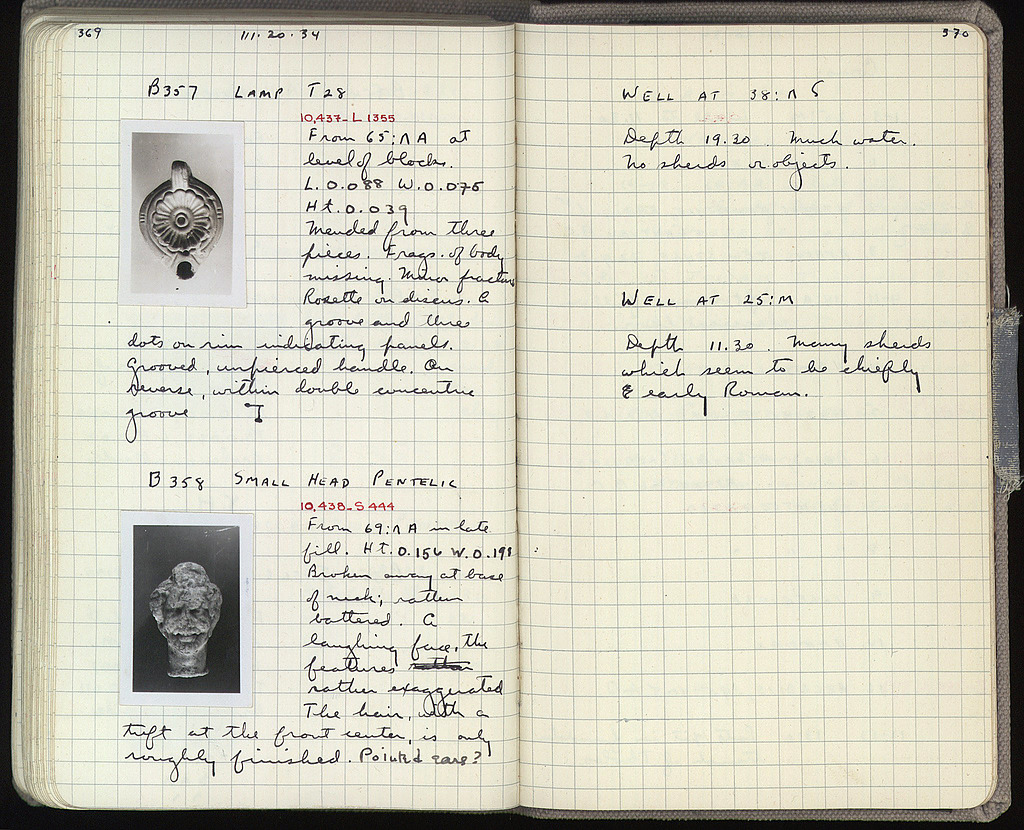 369 111·20·34
B357 LAMP T28
10,437-L 1355
From 65:ΛA at
level of blocks.
L. 0.088 W. 0.076
Ht. 0.039
Mended from three
pieces. Frags. of body
missing. Minor fracture
Rosette on discus. A
groove and three
dots on rim indicating panels.
Grooved, unpierced handle. On
reverse, within double concentric
groove
B358 SMALL HEAD PENTELIC
10,438-S 444
From 69:ΛA in late
fill. Ht. 0.156 W. 0.198
Broken away at base
of neck; rather
battered. A
laughing face, the
features rather
rather exaggerated
The hair, with a
tuft at the front center, is only
roughly finished. Pointed ears?
370
WELL AT 38:Λ
Depth 19.30. Much water.
No sherds or objects.
WELL AT 25:M
Depth 11.30. Many sherds
which seem to be chiefly
early Roman.